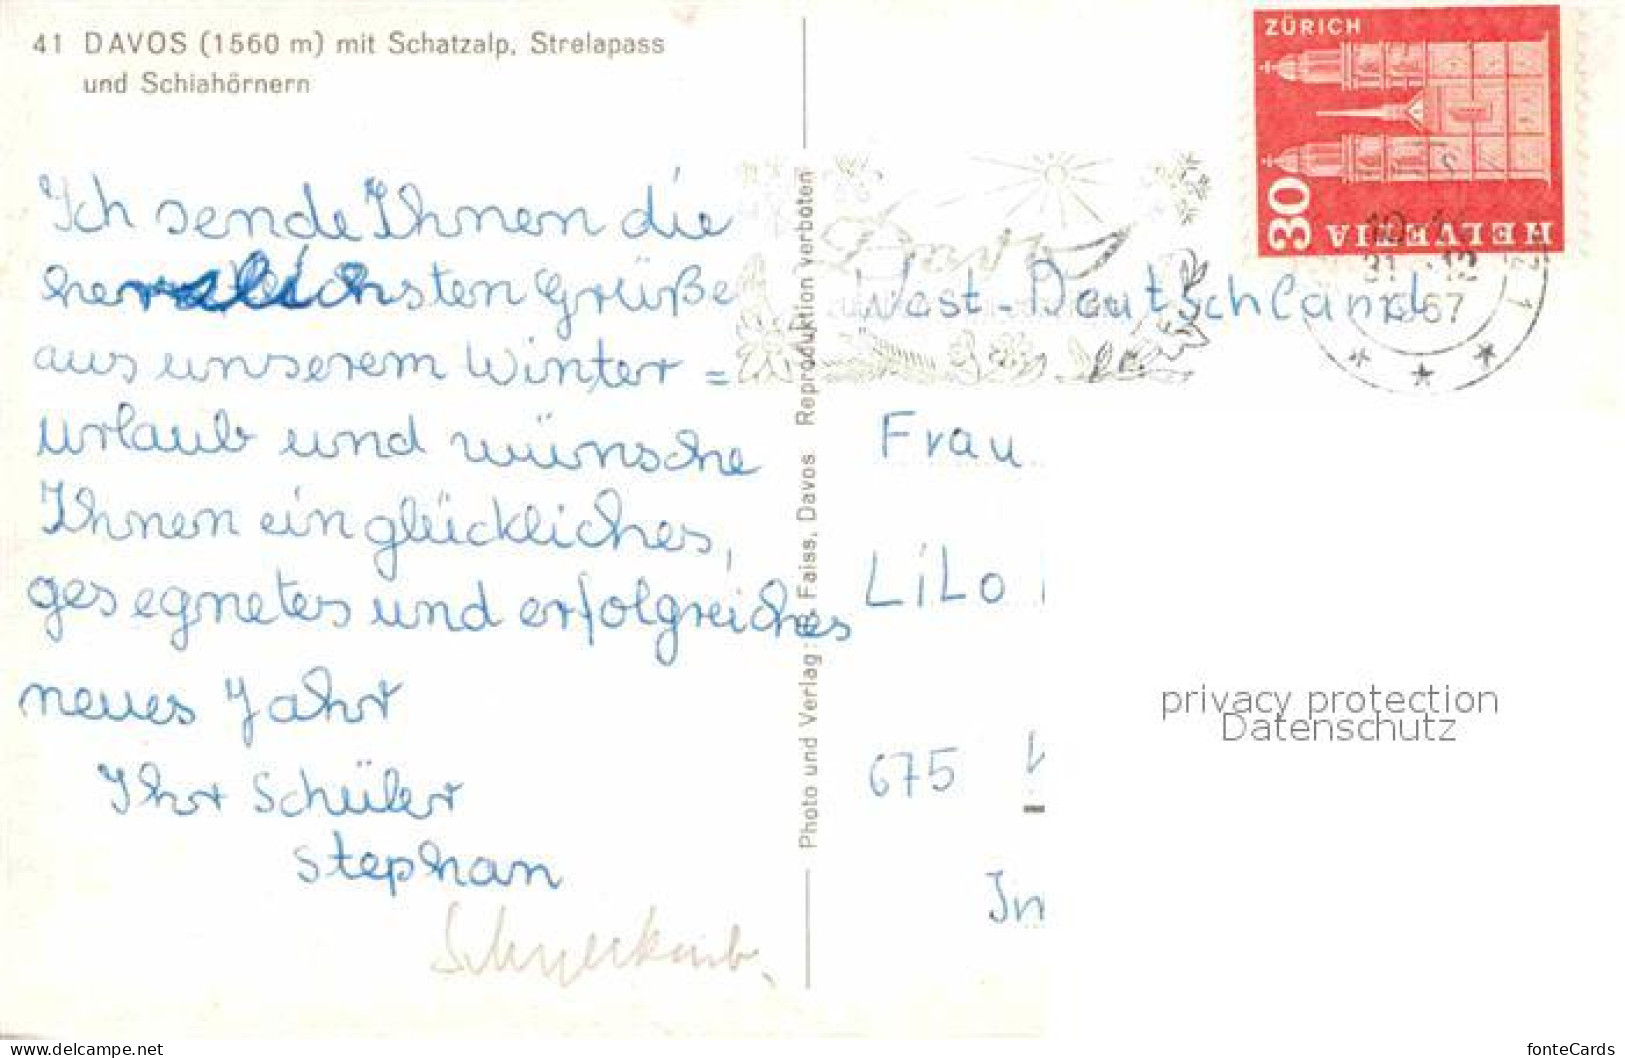 41 DAVOS (1560 m) mit Schatzalp, Strelapass
und Schiahörnern
Ich sende Ihnen die
herzlichsten Grüße
aus unserem Winter =
urlaub und wünsche
Ihnen ein glückliches,
gesegnetes und erfolgreiches
neues Jahr
Ihr Schüler
Stephan
Photo und Verlag: E. Faiss, Davos Reproduktion verboten
ZÜRICH
30
HELVETIA
Davos
31 12
1967
West-Deutschland
Frau
LiLo
675
privacy protection
Datenschutz
www.delcampe.net
fonteCards